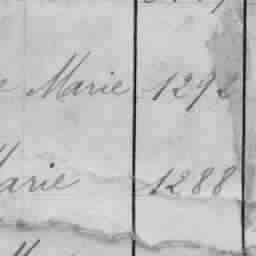 Marie 1292
Marie 1288